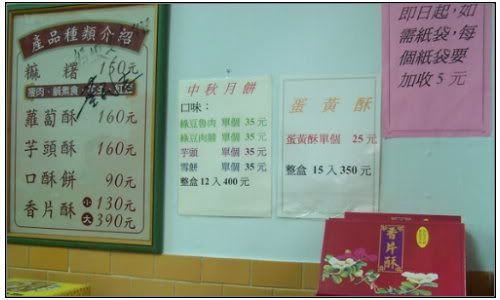 產品種類介紹
麻 糬 150元
蘿蔔酥 160元
芋頭酥 160元
口酥餅 90元
香片酥 小 130元
大 390元
中秋月餅
口味：
綠豆魯肉 單個 35元
綠豆肉臊 單個 35元
芋頭 單個 35元
雪餅 單個 35元
整盒12入400元
蛋黃酥
蛋黃酥單個 25元
整盒 15入350元
即日起，如
需紙袋，每
個紙袋要
加收5元
香片酥